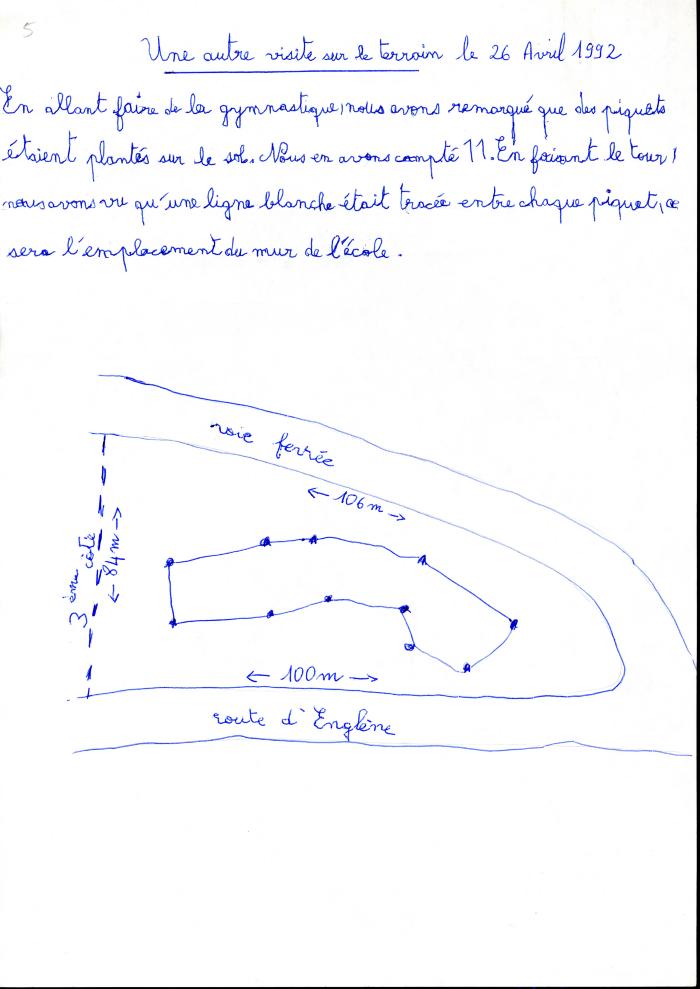 5
Une autre visite sur le terrain le 26 Avril 1992
En allant faire de la gymnastique, nous avons remarqué que des piquets
étaient plantés sur le sol. Nous en avons compté 11. En faisant le tour,
nous avons vu qu'une ligne blanche était tracée entre chaque piquet, ce
sera l'emplacement du mur de l'école.
voie ferrée
← 106m →
3 ème côté
← 84m →
← 100m →
route d'Englène